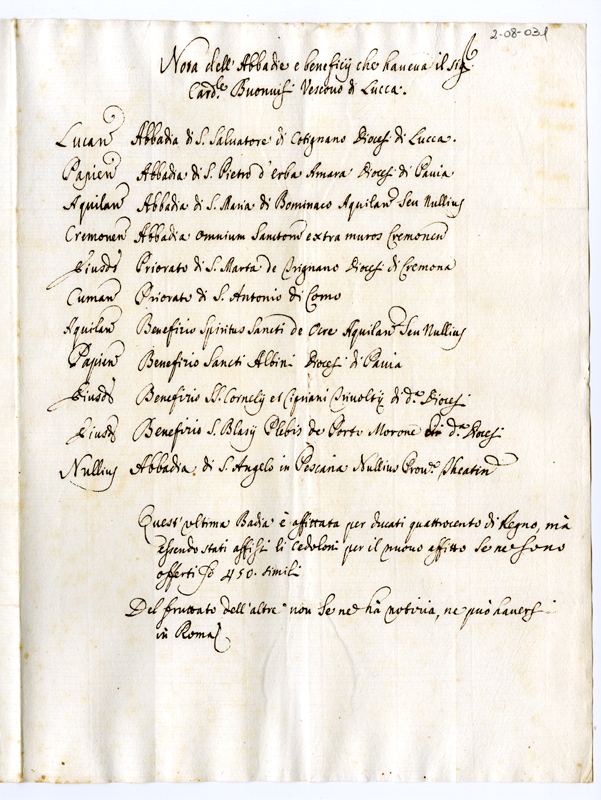 2-08-031
Nota dell'Abbadie e beneficij che haueua il Sig.r
Card.le Buonuisi Vescouo di Lucca.
Lucan Abbadia di S. Saluatore di Cotignano Diocesi di Lucca.
Papien Abbadia di S. Pietro d'erba Amara Diocesi di Pauia
Aquilan Abbadia di S. Maria di Bominaco Aquilan Seu Nullius
Cremonen Abbadia omnium Sanctoru extra muros Cremonen
Eiusd Priorato di S. Marta de Crignano Diocesi di Cremona
Cuman Priorato di S. Antonio di Como
Aquilan Benefizio Spiritus Sancti de Ocre Aquilan Seu Nullius
Papien Benefizio Sancti Albini Diocesi di Pauia
Eiusd Benefizio SS. Cornelij et Cipriani di d.a Diocesi
Eiusd Benefizio S. Blasij Plebis de Porto Morone d.a Diocesi
Nullius Abbadia di S. Angelo in Pescaria Nullius Prou.æ Theatin
Quest'ultima Badia è affittata per ducati quattrocento di Regno, mà
essendo stati affissi li Cedoloni per il nuouo affitto se ne sono
offerti 450. simili
Del fruttato dell'altre non se ne ha notizia, ne può hauersi
in Roma